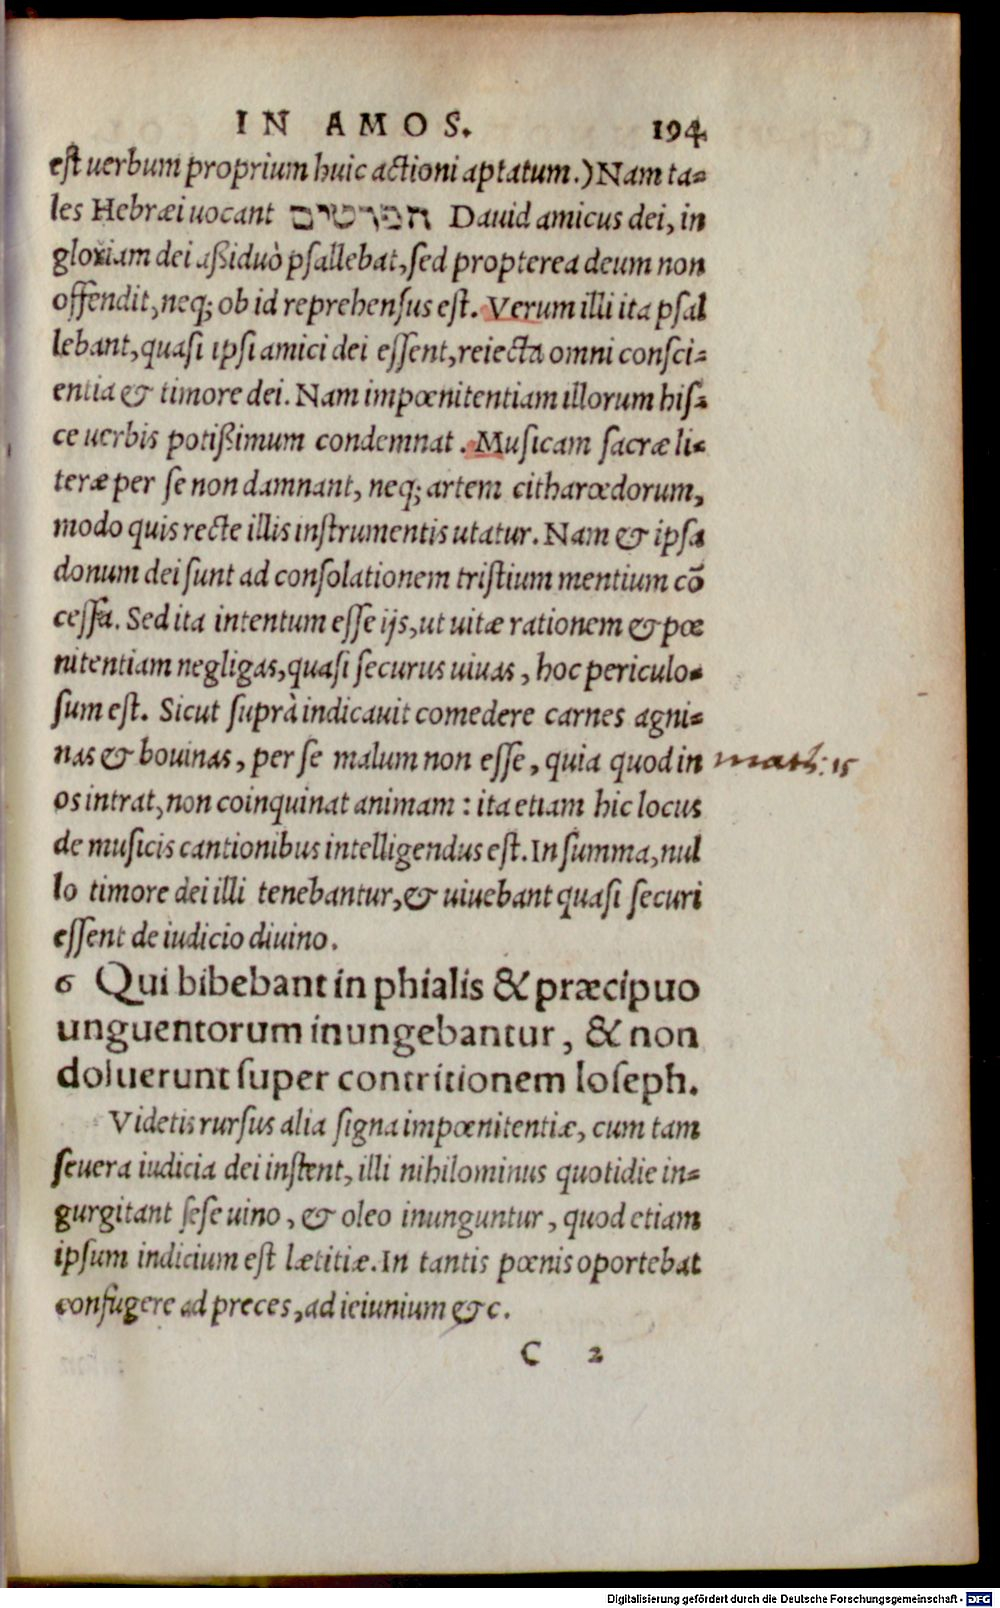 IN AMOS. 194
est uerbum proprium huic actioni aptatum.) Nam ta-
les Hebræi uocant הפרטים Dauid amicus dei, in
gloriam dei aßiduò psallebat, sed propterea deum non
offendit, neq; ob id reprehensus est. Verum illi ita psal
lebant, quasi ipsi amici dei essent, reiecta omni consci-
entia & timore dei. Nam impœnitentiam illorum his-
ce uerbis potißimum condemnat. Musicam sacræ li-
teræ per se non damnant, neq; artem citharœdorum,
modo quis recte illis instrumentis utatur. Nam & ipsa
donum dei sunt ad consolationem tristium mentium cō
cessa. Sed ita intentum esse ijs, ut uitæ rationem & pœ
nitentiam negligas, quasi securus uiuas, hoc periculo-
sum est. Sicut suprà indicauit comedere carnes agni-
nas & bouinas, per se malum non esse, quia quod in math: 15
os intrat, non coinquinat animam: ita etiam hic locus
de musicis cantionibus intelligendus est. In summa, nul
lo timore dei illi tenebantur, & uiuebant quasi securi
essent de iudicio diuino.
6 Qui bibebant in phialis & præcipuo
unguentorum inungebantur, & non
doluerunt super contritionem Ioseph.
Videtis rursus alia signa impœnitentiæ, cum tam
seuera iudicia dei instent, illi nihilominus quotidie in-
gurgitant sese uino, & oleo inunguntur, quod etiam
ipsum indicium est lætitiæ. In tantis pœnis oportebat
confugere ad preces, ad ieiunium &c.
C 2
Digitalisierung gefördert durch die Deutsche Forschungsgemeinschaft - DFG